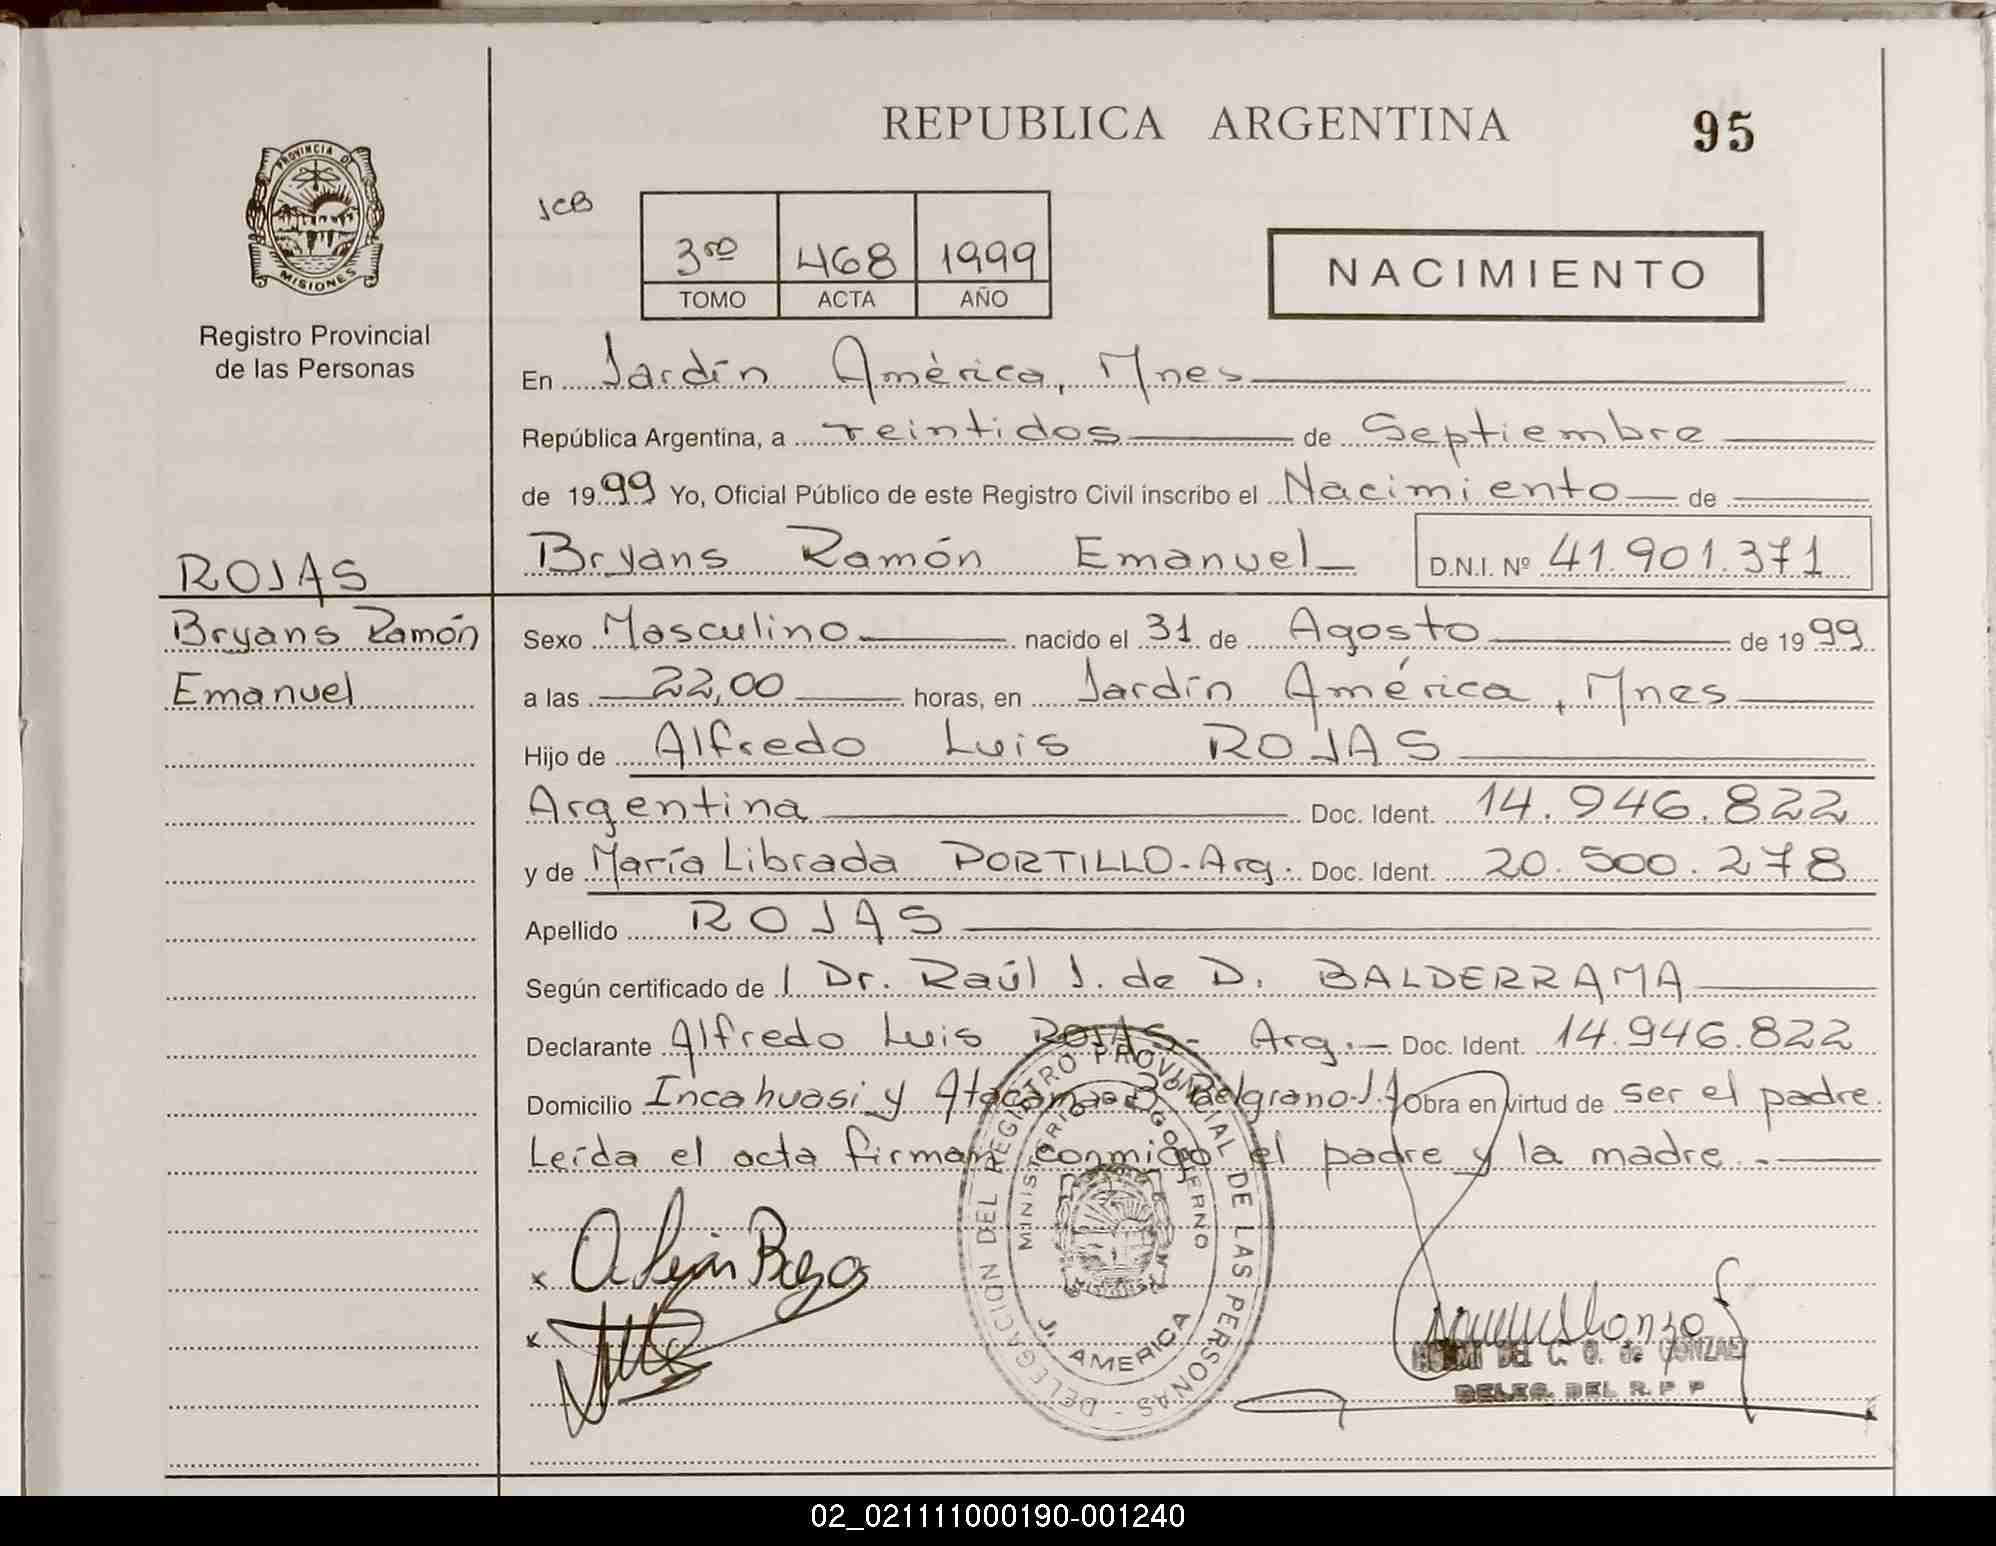 REPUBLICA ARGENTINA
95
PROVINCIA DE
MISIONES
Registro Provincial
de las Personas
JCB
3ro 468 1999
TOMO ACTA AÑO
NACIMIENTO
En Jardín América, Mnes
República Argentina, a veintidos de Septiembre
de 1999 Yo, Oficial Público de este Registro Civil inscribo el Nacimiento de
Bryans Ramón Emanuel D.N.I. Nº 41.901.371
ROJAS
Bryans Ramón
Emanuel
Sexo Masculino nacido el 31 de Agosto de 1999
a las 22,00 horas, en Jardín América, Mnes
Hijo de Alfredo Luis ROJAS
Argentina Doc. Ident. 14.946.822
y de María Librada PORTILLO-Arg. Doc. Ident. 20.500.278
Apellido ROJAS
Según certificado de l Dr. Raúl J. de D. BALDERRAMA
Declarante Alfredo Luis ROJAS- Arg. Doc. Ident. 14.946.822
Domicilio Incahuasi y Atacama Bº Belgrano-J.A Obra en virtud de ser el padre.
Leída el acta firman conmigo el padre y la madre.-
DELEGACION DEL REGISTRO PROVINCIAL DE LAS PERSONAS
MINISTERIO DE GOBIERNO
J. AMERICA
DEL C. G. de GONZALEZ
DELEG. DEL R. P. P
02_021111000190-001240